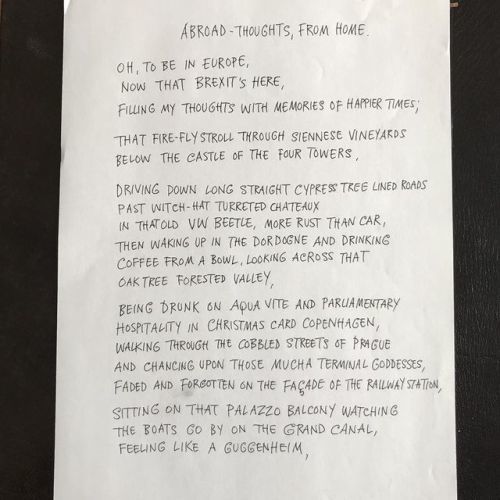 ABROAD-THOUGHTS, FROM HOME.
OH, TO BE IN EUROPE,
NOW THAT BREXIT'S HERE,
FILLING MY THOUGHTS WITH MEMORIES OF HAPPIER TIMES;
THAT FIRE-FLY STROLL THROUGH SIENNESE VINEYARDS
BELOW THE CASTLE OF THE FOUR TOWERS,
DRIVING DOWN LONG STRAIGHT CYPRESS TREE LINED ROADS
PAST WITCH-HAT TURRETED CHATEAUX
IN THAT OLD VW BEETLE, MORE RUST THAN CAR,
THEN WAKING UP IN THE DORDOGNE AND DRINKING
COFFEE FROM A BOWL, LOOKING ACROSS THAT
OAK TREE FORESTED VALLEY,
BEING DRUNK ON AQUA VITE AND PARLIAMENTARY
HOSPITALITY IN CHRISTMAS CARD COPENHAGEN,
WALKING THROUGH THE COBBLED STREETS OF PRAGUE
AND CHANCING UPON THOSE MUCHA TERMINAL GODDESSES,
FADED AND FORGOTTEN ON THE FAÇADE OF THE RAILWAY STATION,
SITTING ON THAT PALAZZO BALCONY WATCHING
THE BOATS GO BY ON THE GRAND CANAL,
FEELING LIKE A GUGGENHEIM,